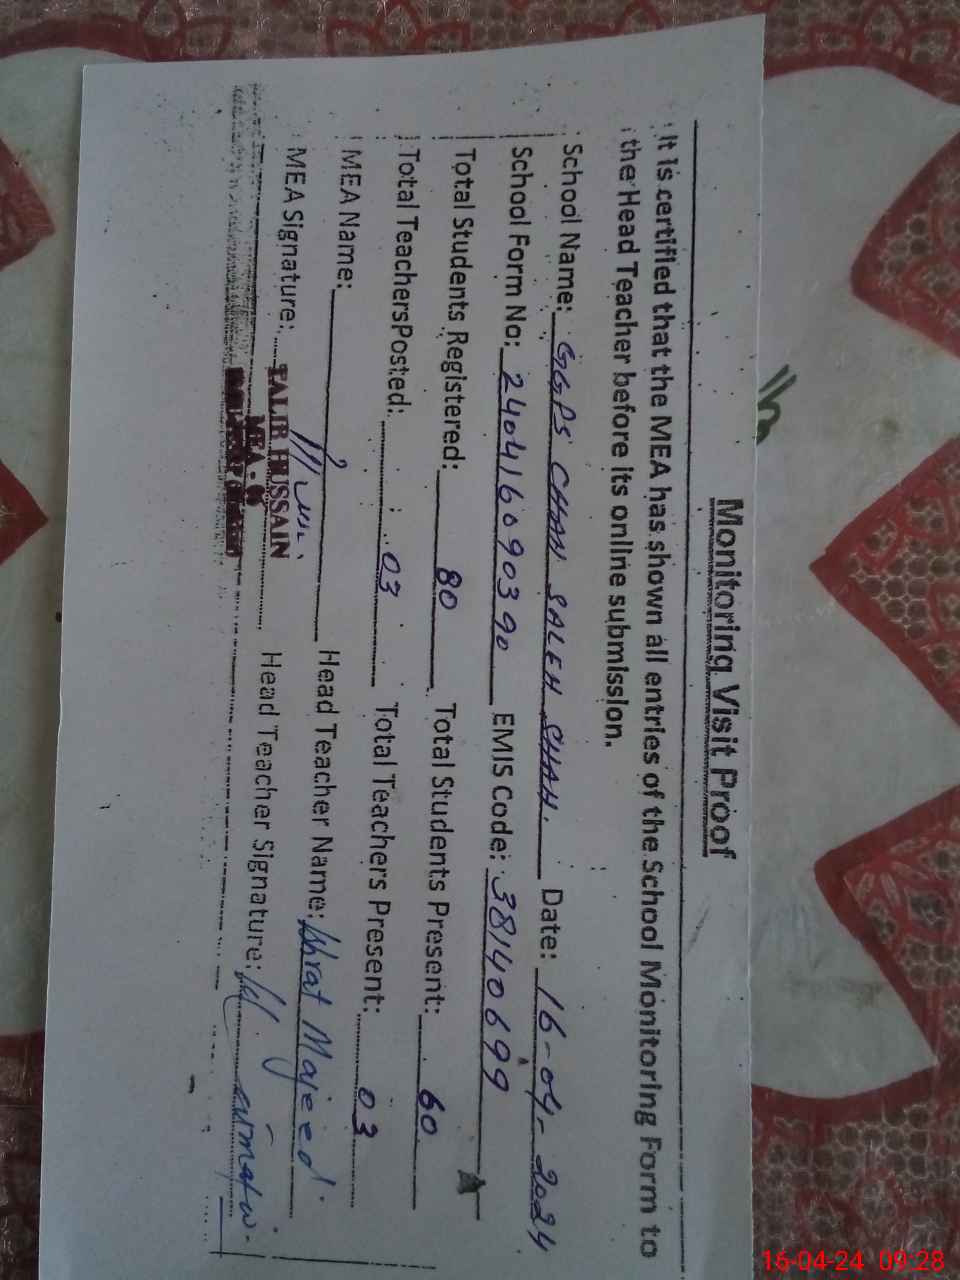 Monitoring Visit Proof
It is certified that the MEA has shown all entries of the School Monitoring Form to
the Head Teacher before its online submission.
School Name: GGPS CHAN SALEH SHAH. Date: 16-04-2024
School Form No: 240416090390 EMIS Code: 38140699
Total Students Registered: 80 Total Students Present: 60
Total TeachersPosted: 03 Total Teachers Present: 03
MEA Name: Head Teacher Name: Ishrat Majeed
MEA Signature: Head Teacher Signature:
TALIB HUSSAIN
MEA -
16-04-24 09:28